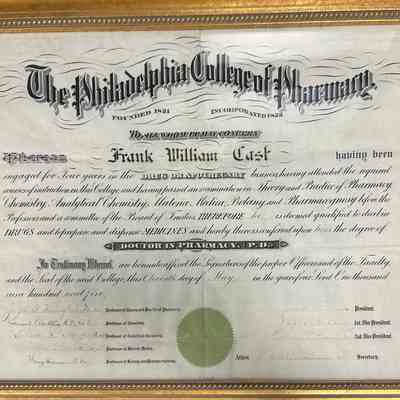 The Philadelphia College of Pharmacy
FOUNDED 1821 INCORPORATED 1822
TO ALL WHOM IT MAY CONCERN
Whereas Frank William Cast having been
engaged for Four years in the DRUG OR APOTHECARY business, having attended the required
courses of instruction in this College, and having passed an examination in Theory and Practice of Pharmacy
Chemistry, Analytical Chemistry, Materia Medica, Botany and Pharmacognosy before the
Professors and a committee of the Board of Trustees THEREFORE he is deemed qualified to deal in
DRUGS and to prepare and dispense MEDICINES and hereby there is conferred upon him the degree of
DOCTOR IN PHARMACY, P.D.
In Testimony Whereof, are hereunto affixed the Signatures of the proper Officers and of the Faculty,
and the Seal of the said College, this day of May in the year of our Lord One thousand
nine hundred and five
Professor of Theory and Practice of Pharmacy. President.
Professor of Chemistry. 1st. Vice President.
Professor of Analytical Chemistry. 2nd. Vice President.
Professor of Materia Medica.
Professor of Botany and Pharmacognosy. Attest Secretary.